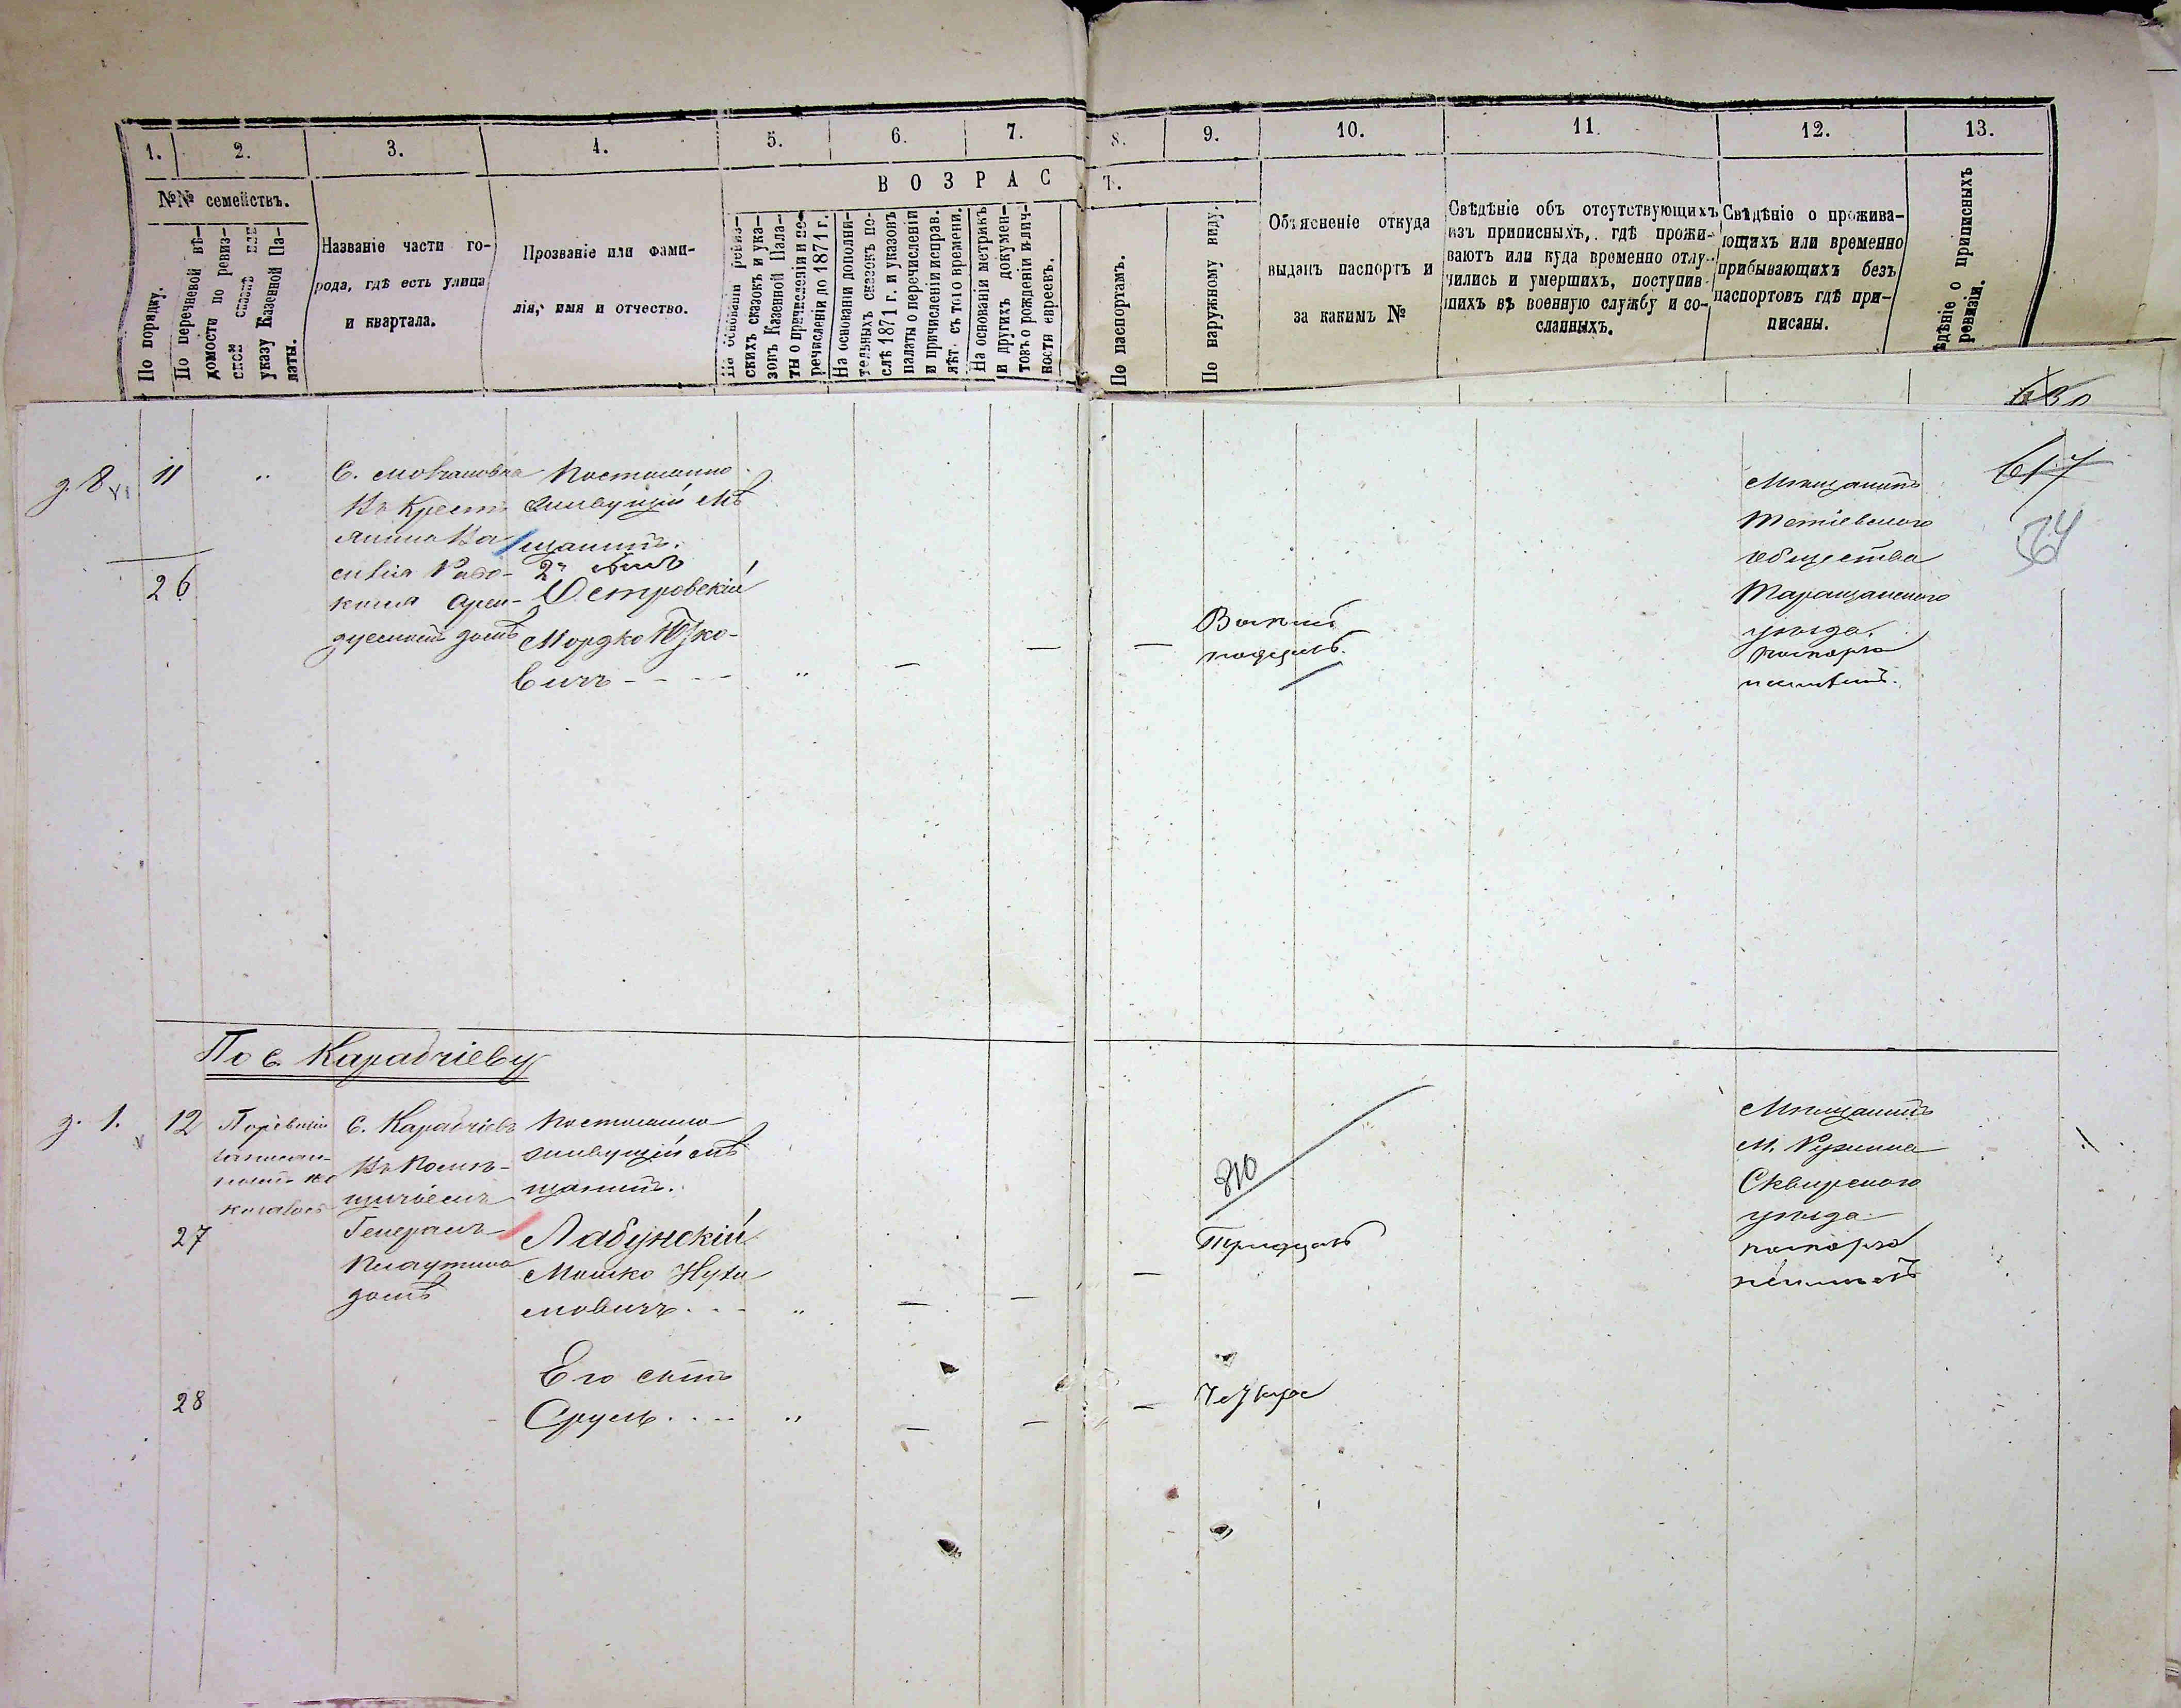 1. 2. 3. 4. 5. 6. 7. 8. 9. 10. 11. 12. 13.
№№ семействъ.
По порядку.
По перечневой вѣ-
домости по ревиз-
ской сказкѣ или
указу Казенной Па-
латы.
Названіе части го-
рода, гдѣ есть улица
и квартала.
Прозваніе или фами-
лія, имя и отчество.
ВОЗРАС
Т.
На основаніи ревиз-
скихъ сказокъ и ука-
зовъ Казенной Пала-
ты о причисленіи и пе-
речисленіи до 1871 г.
На основаніи дополни-
тельныхъ сказокъ по-
слѣ 1871 г. и указовъ
палаты о перечисленіи
и причисленіи исправ.
лѣт. съ того времени.
На основаніи метрикъ
и другихъ докумен-
товъ о рожденіи и лич-
ности евреевъ.
По паспортамъ.
По наружному виду.
Объясненіе откуда
выданъ паспортъ и
за какимъ №
Свѣдѣніе объ отсутствующихъ
изъ приписныхъ, гдѣ прожи-
ваютъ или куда временно отлу-
чились и умершихъ, поступив-
шихъ въ военную службу и со-
сланныхъ.
Свѣдѣніе о прожива-
ющихъ или временно
прибывающихъ безъ
паспортовъ гдѣ при-
писаны.
ѣдѣніе о приписныхъ
ревизіи.
д. 8 11 "
С. Молчановка
Въ Крест
янина Ва
силія
дуемомъ домѣ
Постоянно
живущій мѣ
щанинъ.
26
Островскій
Мордко Юзко-
вичъ - - - - " —
— —
Мѣщанинъ
Тетіевскаго
Общества
Таращанскаго
уѣзда.
паспорта
617
64
По с. Карабчіеву
д. 1. 12
С. Карабчіевъ
Въ Помѣ-
щичьемъ
Генералъ
домѣ
Постоянно
живущій мѣ
щанинъ.
27
Лабунскій
Мошко Нухи
мовичъ. - - " — —
—
Тридцать
Мѣщанинъ
М. Ружина
Сквирскаго
уѣзда
паспорта
Его сынъ
28
Сруль. . . . " — —
—